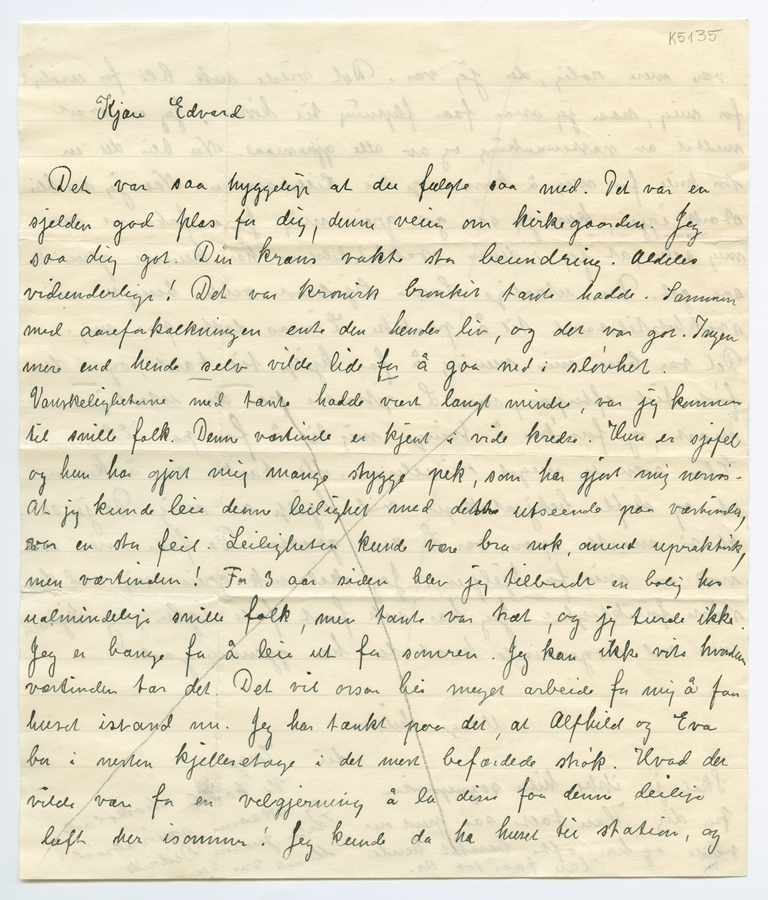 K5135
Kjære Edvard
Det var saa hyggelig at du fulgte saa med. Det var en
sjelden god plas for dig, denne veien om kirkegaarden. Jeg
saa dig got. Din krans vakte stor beundring. Aldeles
vidunderlig! Det var kronisk bronkit tante hadde. Sammen
med aareforkalkningen ente den hendes liv, og det var got. Ingen
mere end hende selv vilde lide for å gaa ned i sløvhet.
Vanskeligheterne med tante hadde vært langt mindre, var jeg kommen
til snille folk. Denne værtinde er kjent i vide kredse. Hun er sjofel
og hun har gjort mig mange stygge pek, som har gjort mig nervøs.
At jeg kunde leie denne leilighet med dette utseende paa værtinden,
var en stor feil. Leiligheten kunde være bra nok, omend upraktisk,
men værtinden! For 3 aar siden blev jeg tilbudt en bolig hos
ualmindelig snille folk, men tante var træt, og jeg turde ikke.
Jeg er bange for å leie ut for somren. Jeg kan ikke vite hvordan
værtinden tar det. Det vil ogsaa bli meget arbeide for mig å faa
huset istand nu. Jeg har tænkt paa det, at Alfhild og Eva
bor i nesten kjelleretage i det mest befærdede strøk. Hvad det
vilde være for en velgjerning å la disse faa denne deilige
luft her isommer! Jeg kunde da ha huset til station, og